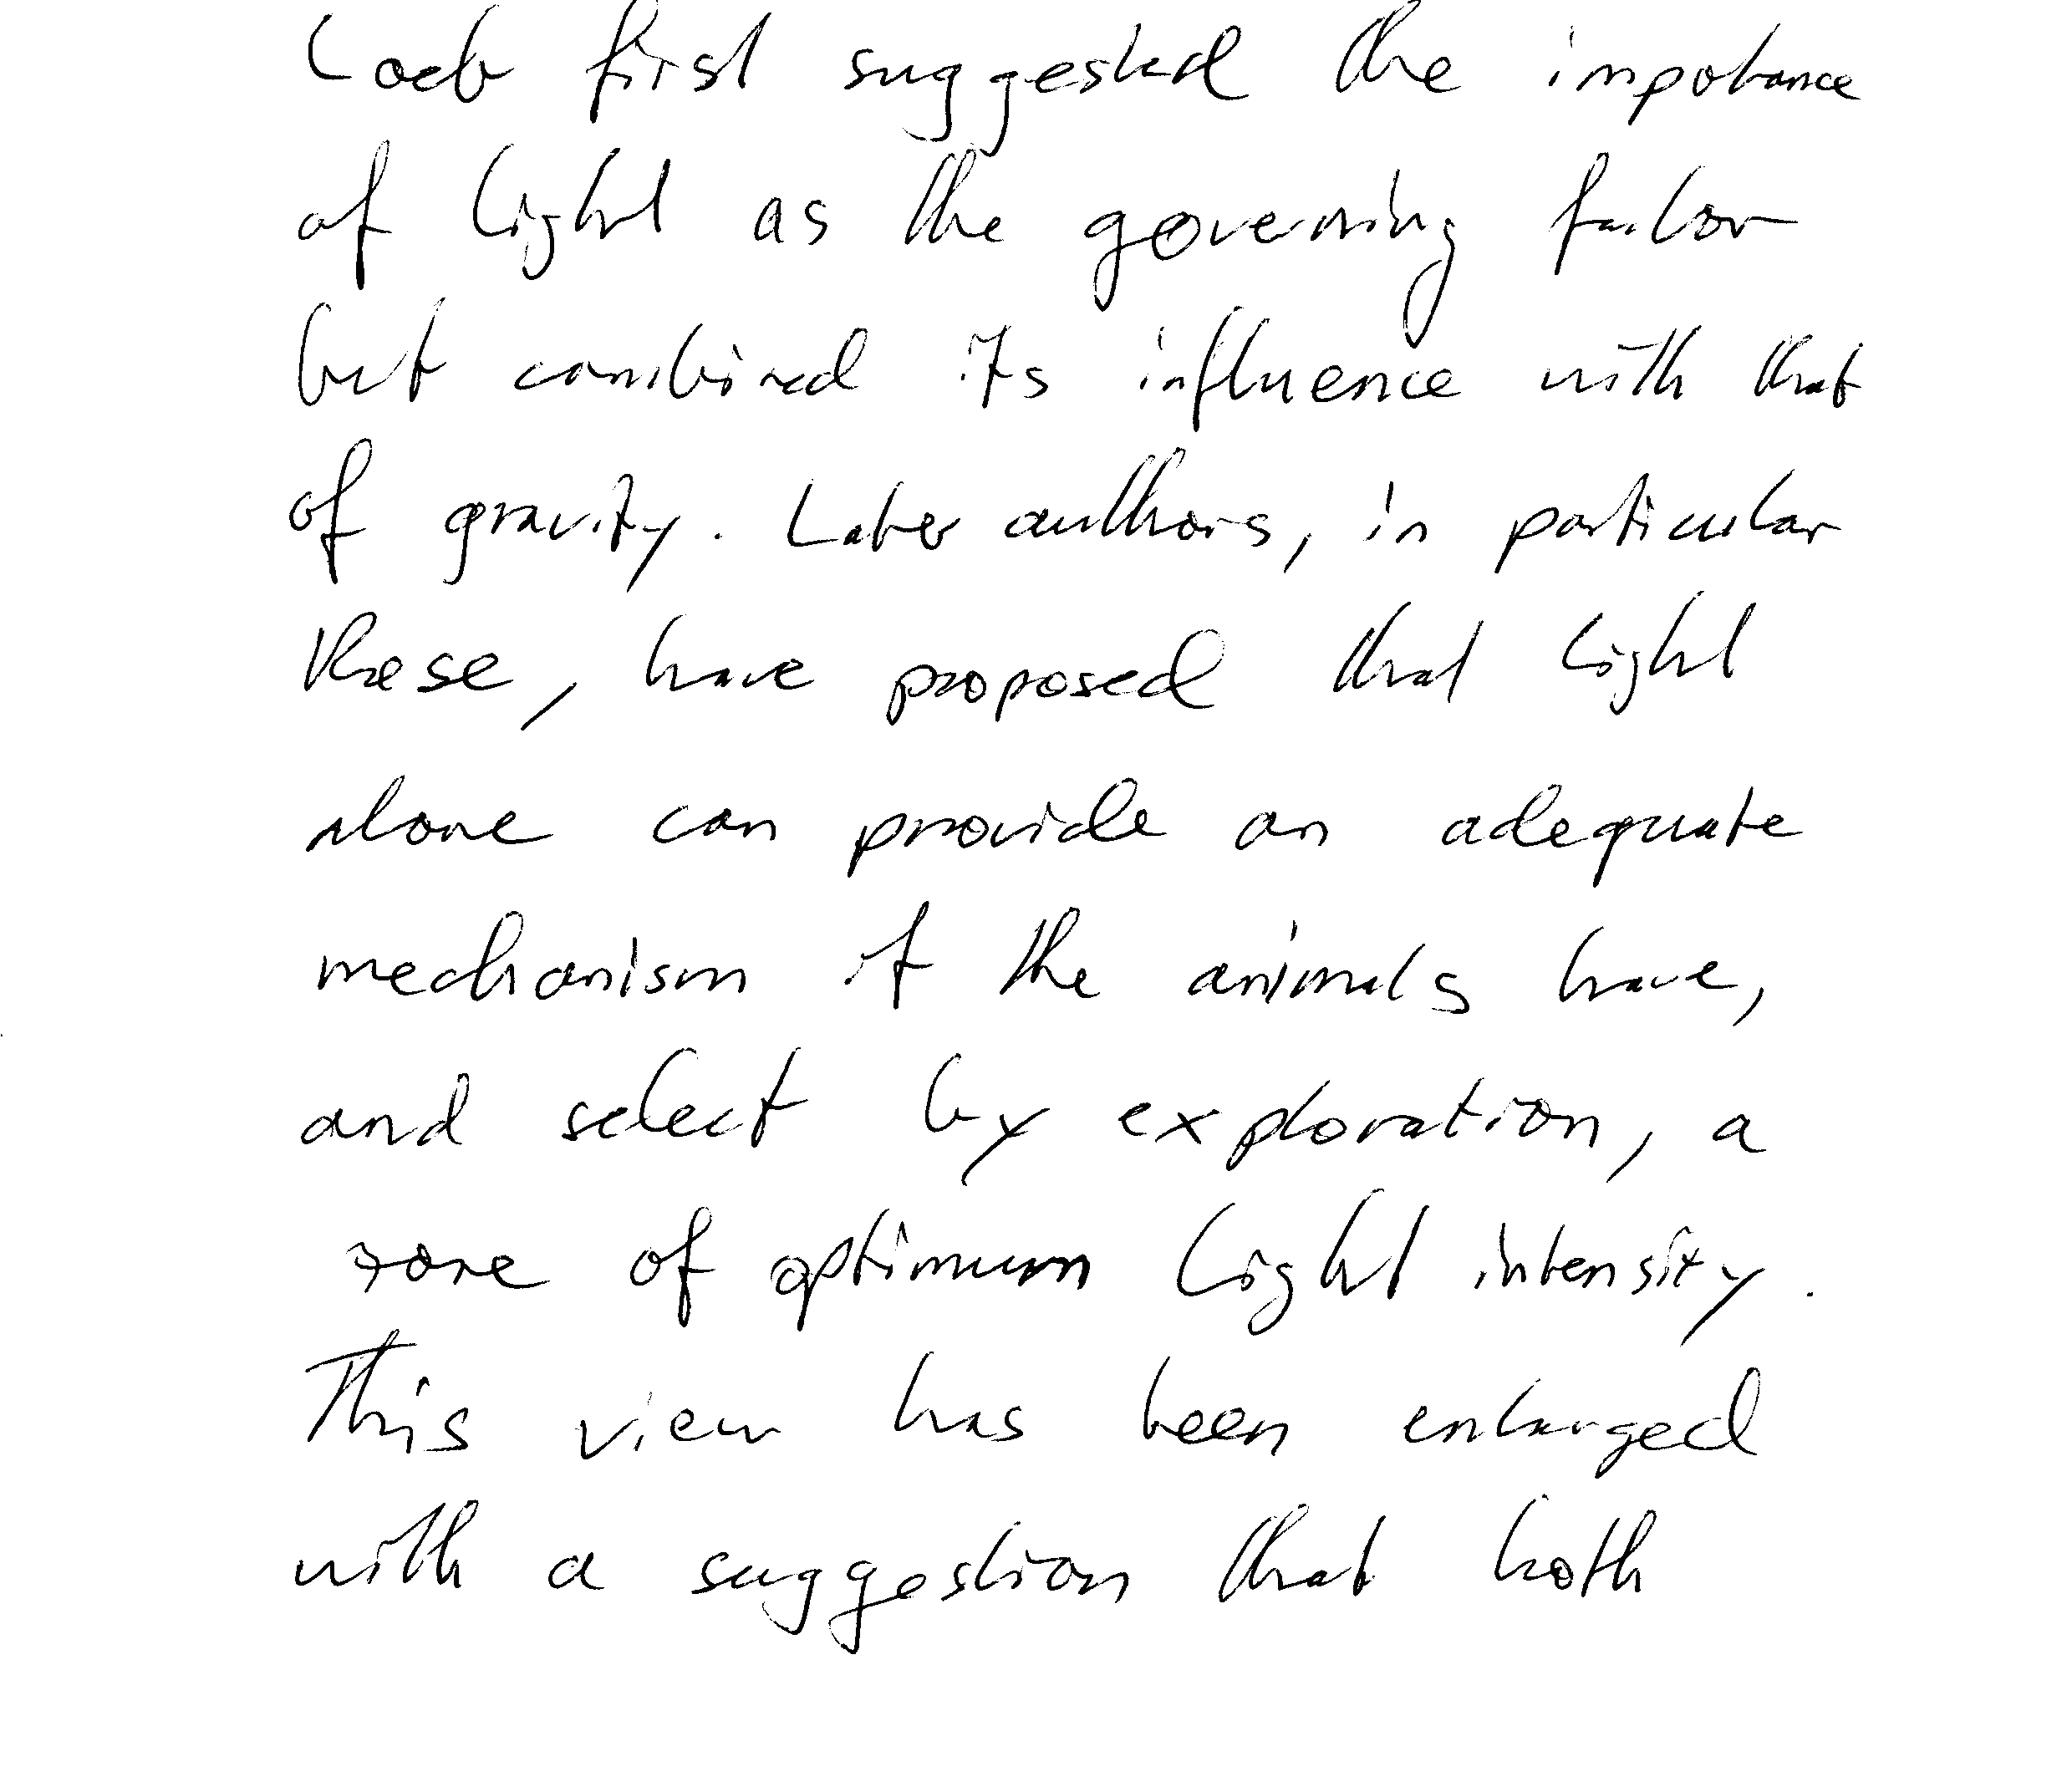 Loeb first suggested the impotance
of light as the governing factor
but combined its influence with that
of gravity. Later authors, in particular
these, have proposed that light
alone can provide an adequate
mechanism if the animals have,
and select by exploration, a
zone of optimum light intensity.
This view has been enlarged
with a suggestion that both